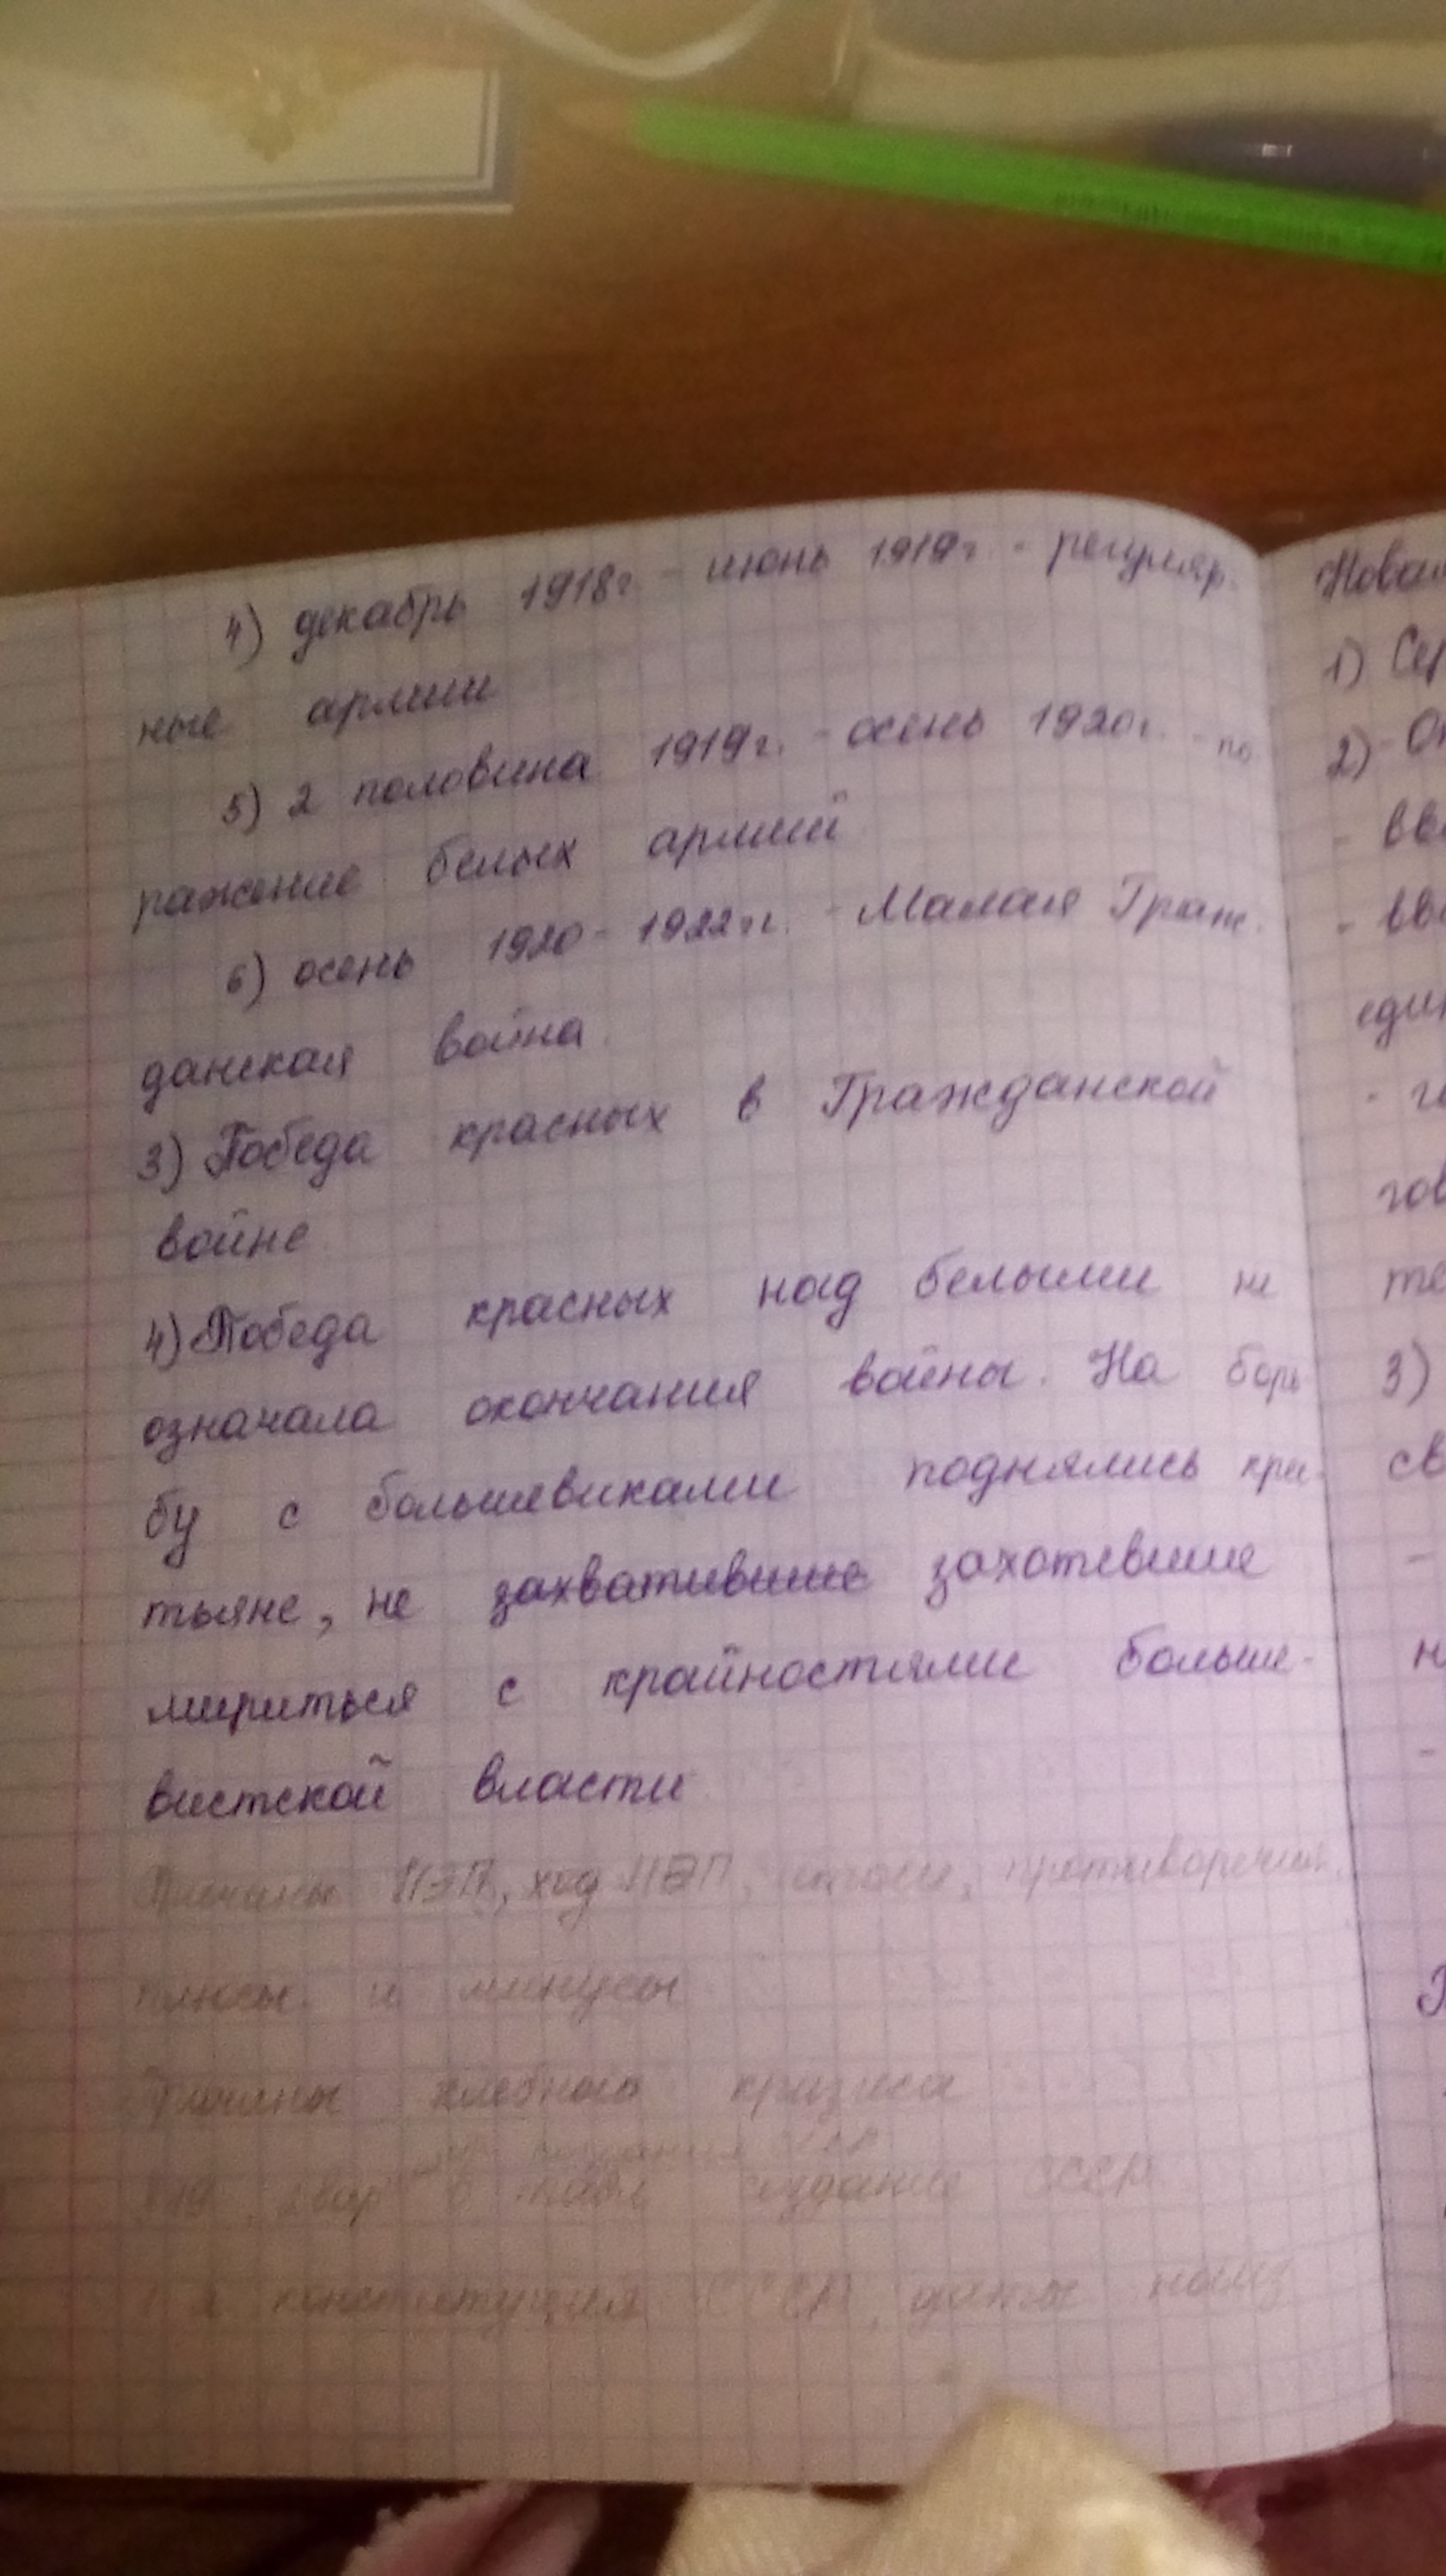 4) декабрь 1918г. - июнь 1919г. - регуляр-
ные армии
5) 2 половина 1919г. - осень 1920г. - по
ражение белых армий
6) осень 1920 - 1922гг. - Малая Граж-
данская война
3) Победа красных в Гражданской
войне
4) Победа красных над белыми не
означала окончания войны. На борь
бу с большевиками поднялись
тьяне, не захватившие захотевшие
мириться с крайностями больше-
вистской власти
Причины НЭП, ход НЭП, итоги, противоречия,
плюсы и минусы
Причины хлебного кризиса
создание СССР
конституция СССР, даты
Новая
1) Сер
2)
- вв
- вв
еди
гов
3)
св